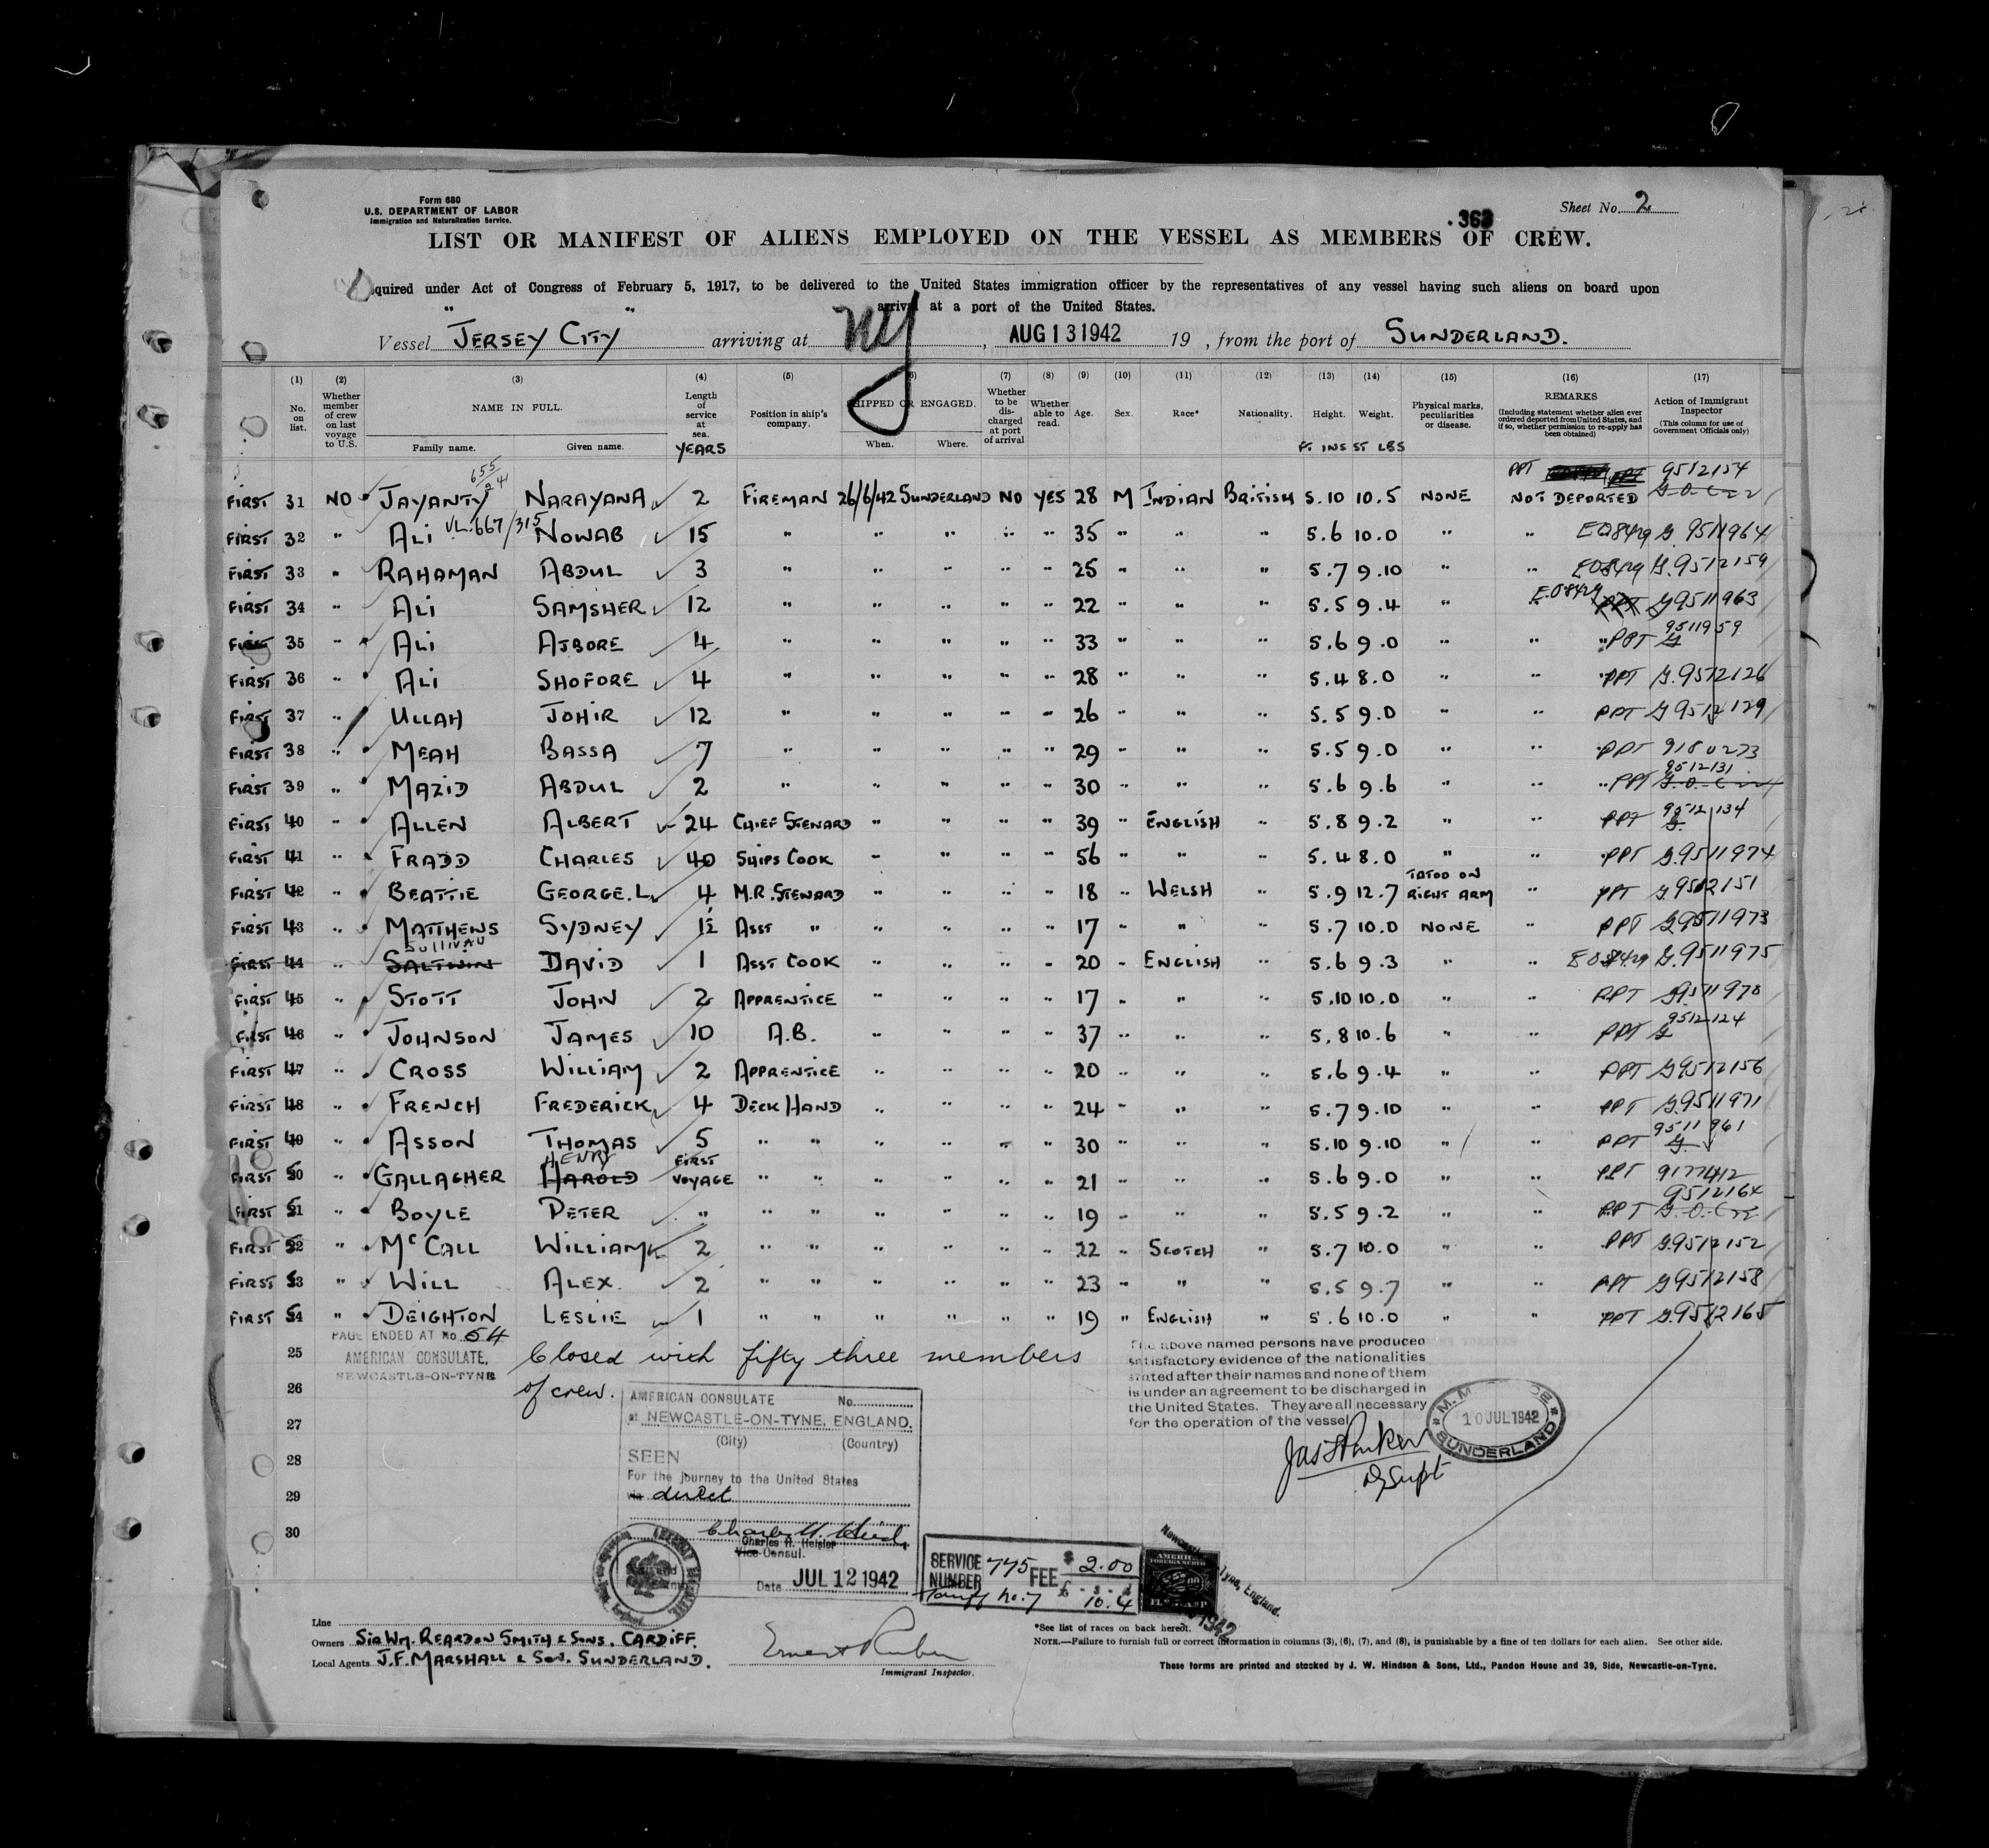 Form 680
U.S. DEPARTMENT OF LABOR
Immigration and Naturalization Service.
Sheet No. 2
363
LIST OR MANIFEST OF ALIENS EMPLOYED ON THE VESSEL AS MEMBERS OF CREW.
quired under Act of Congress of February 5, 1917, to be delivered to the United States immigration officer by the representatives of any vessel having such aliens on board upon
arrival at a port of the United States.
Vessel JERSEY CITY arriving at NY, AUG 13 1942 19 , from the port of SUNDERLAND.
(1) No. on list.
(2) Whether member of crew on last voyage to U.S.
(3) NAME IN FULL. Family name. Given name.
(4) Length of service at sea. YEARS
(5) Position in ship's company.
(6) SHIPPED OR ENGAGED. When. Where.
(7) Whether to be discharged at port of arrival
(8) Whether able to read.
(9) Age.
(10) Sex.
(11) Race*
(12) Nationality.
(13) Height. FT INS
(14) Weight. ST LBS
(15) Physical marks, peculiarities or disease.
(16) REMARKS (Including statement whether alien ever ordered deported from United States, and if so, whether permission to re-apply has been obtained)
(17) Action of Immigrant Inspector (This column for use of Government Officials only)
FIRST 31 NO JAYANTY 655/241 NARAYANA 2 FIREMAN 26/6/42 SUNDERLAND NO YES 28 M INDIAN BRITISH 5.10 10.5 NONE PPT NOT DEPORTED 9512154
FIRST 32 " ALI VL.667/315 NOWAB 15 " " " " " 35 " " " 5.6 10.0 " " EO8429 G. 9511964
FIRST 33 " RAHAMAN ABDUL 3 " " " " " 25 " " " 5.7 9.10 " " EO8429 G.9512159
FIRST 34 " ALI SAMSHER 12 " " " " " 22 " " " 5.5 9.4 " " EO8429 PPT G9511963
FIRST 35 " ALI AJBORE 4 " " " " " 33 " " " 5.6 9.0 " " PPT G 9511959
FIRST 36 " ALI SHOFORE 4 " " " " " 28 " " " 5.4 8.0 " " PPT G.9512126
FIRST 37 " ULLAH JOHIR 12 " " " " " 26 " " " 5.5 9.0 " " PPT G 9512129
FIRST 38 " MEAH BASSA 7 " " " " " 29 " " " 5.5 9.0 " " PPT 9180273
FIRST 39 " MAZID ABDUL 2 " " " " " 30 " " " 5.6 9.6 " " PPT 9512131
FIRST 40 " ALLEN ALBERT 24 CHIEF STEWARD " " " " 39 " ENGLISH " 5.8 9.2 " " PPT G. 9512134
FIRST 41 " FRADD CHARLES 40 SHIPS COOK " " " " 56 " " " 5.4 8.0 " " PPT G.9511974
FIRST 42 " BEATTIE GEORGE.L. 4 M.R.STEWARD " " " " 18 " WELSH " 5.9 12.7 TATOO ON RIGHT ARM " PPT G.9512151
FIRST 43 " MATTHEWS SYDNEY 1½ ASST " " " " " 17 " " " 5.7 10.0 NONE " PPT G9511973
FIRST 44 " SALTWIN SULLIVAN DAVID 1 ASST COOK " " " " 20 " ENGLISH " 5.6 9.3 " " EO8429 G.9511975
FIRST 45 " STOTT JOHN 2 APPRENTICE " " " " 17 " " " 5.10 10.0 " " PPT G9511970
FIRST 46 " JOHNSON JAMES 10 A.B. " " " " 37 " " " 5.8 10.6 " " PPT G 9512124
FIRST 47 " CROSS WILLIAM 2 APPRENTICE " " " " 20 " " " 5.6 9.4 " " PPT G9512156
FIRST 48 " FRENCH FREDERICK 4 DECK HAND " " " " 24 " " " 5.7 9.10 " " PPT G.9511971
FIRST 49 " ASSON THOMAS 5 " " " " " " 30 " " " 5.10 9.10 " " PPT G. 9511961
FIRST 50 " GALLAGHER HAROLD HENRY FIRST VOYAGE " " " " " " 21 " " " 5.6 9.0 " " PPT 9177412
FIRST 51 " BOYLE PETER " " " " " " " 19 " " " 5.5 9.2 " " PPT 9512164
FIRST 52 " McCALL WILLIAM 2 " " " " " " 22 " SCOTCH " 5.7 10.0 " " PPT G.9512152
FIRST 53 " WILL ALEX. 2 " " " " " " 23 " " " 5.5 9.7 " " PPT G9512158
FIRST 54 " DEIGHTON LESLIE 1 " " " " " " 19 " ENGLISH " 5.6 10.0 " " PPT G.9512165
PAGE ENDED AT No. 54
AMERICAN CONSULATE,
NEWCASTLE-ON-TYNE
25
26
27
28
29
30
Closed with fifty three members
of crew.
AMERICAN CONSULATE No.
at NEWCASTLE-ON-TYNE, ENGLAND.
(City) (Country)
SEEN
For the journey to the United States
via direct
Charles H. Heisler
Vice Consul.
Date JUL 12 1942
The above named persons have produced
satisfactory evidence of the nationalities
stated after their names and none of them
is under an agreement to be discharged in
the United States. They are all necessary
for the operation of the vessel
Jas Parker
D/Supt
10 JUL 1942
SUNDERLAND
SERVICE NUMBER 775 FEE $ 2.00
£ - s - d
10.4
Tariff No. 7
AMERICAN
FOREIGN SERVICE
Newcastle-on-Tyne, England.
1942
Line
Owners SIR WM. REARDON SMITH & SONS. CARDIFF.
Local Agents J.F. MARSHALL & SON. SUNDERLAND.
Immigrant Inspector.
*See list of races on back hereof.
NOTE.—Failure to furnish full or correct information in columns (3), (6), (7), and (8), is punishable by a fine of ten dollars for each alien. See other side.
These forms are printed and stocked by J. W. Hindson & Sons, Ltd., Pandon House and 39, Side, Newcastle-on-Tyne.